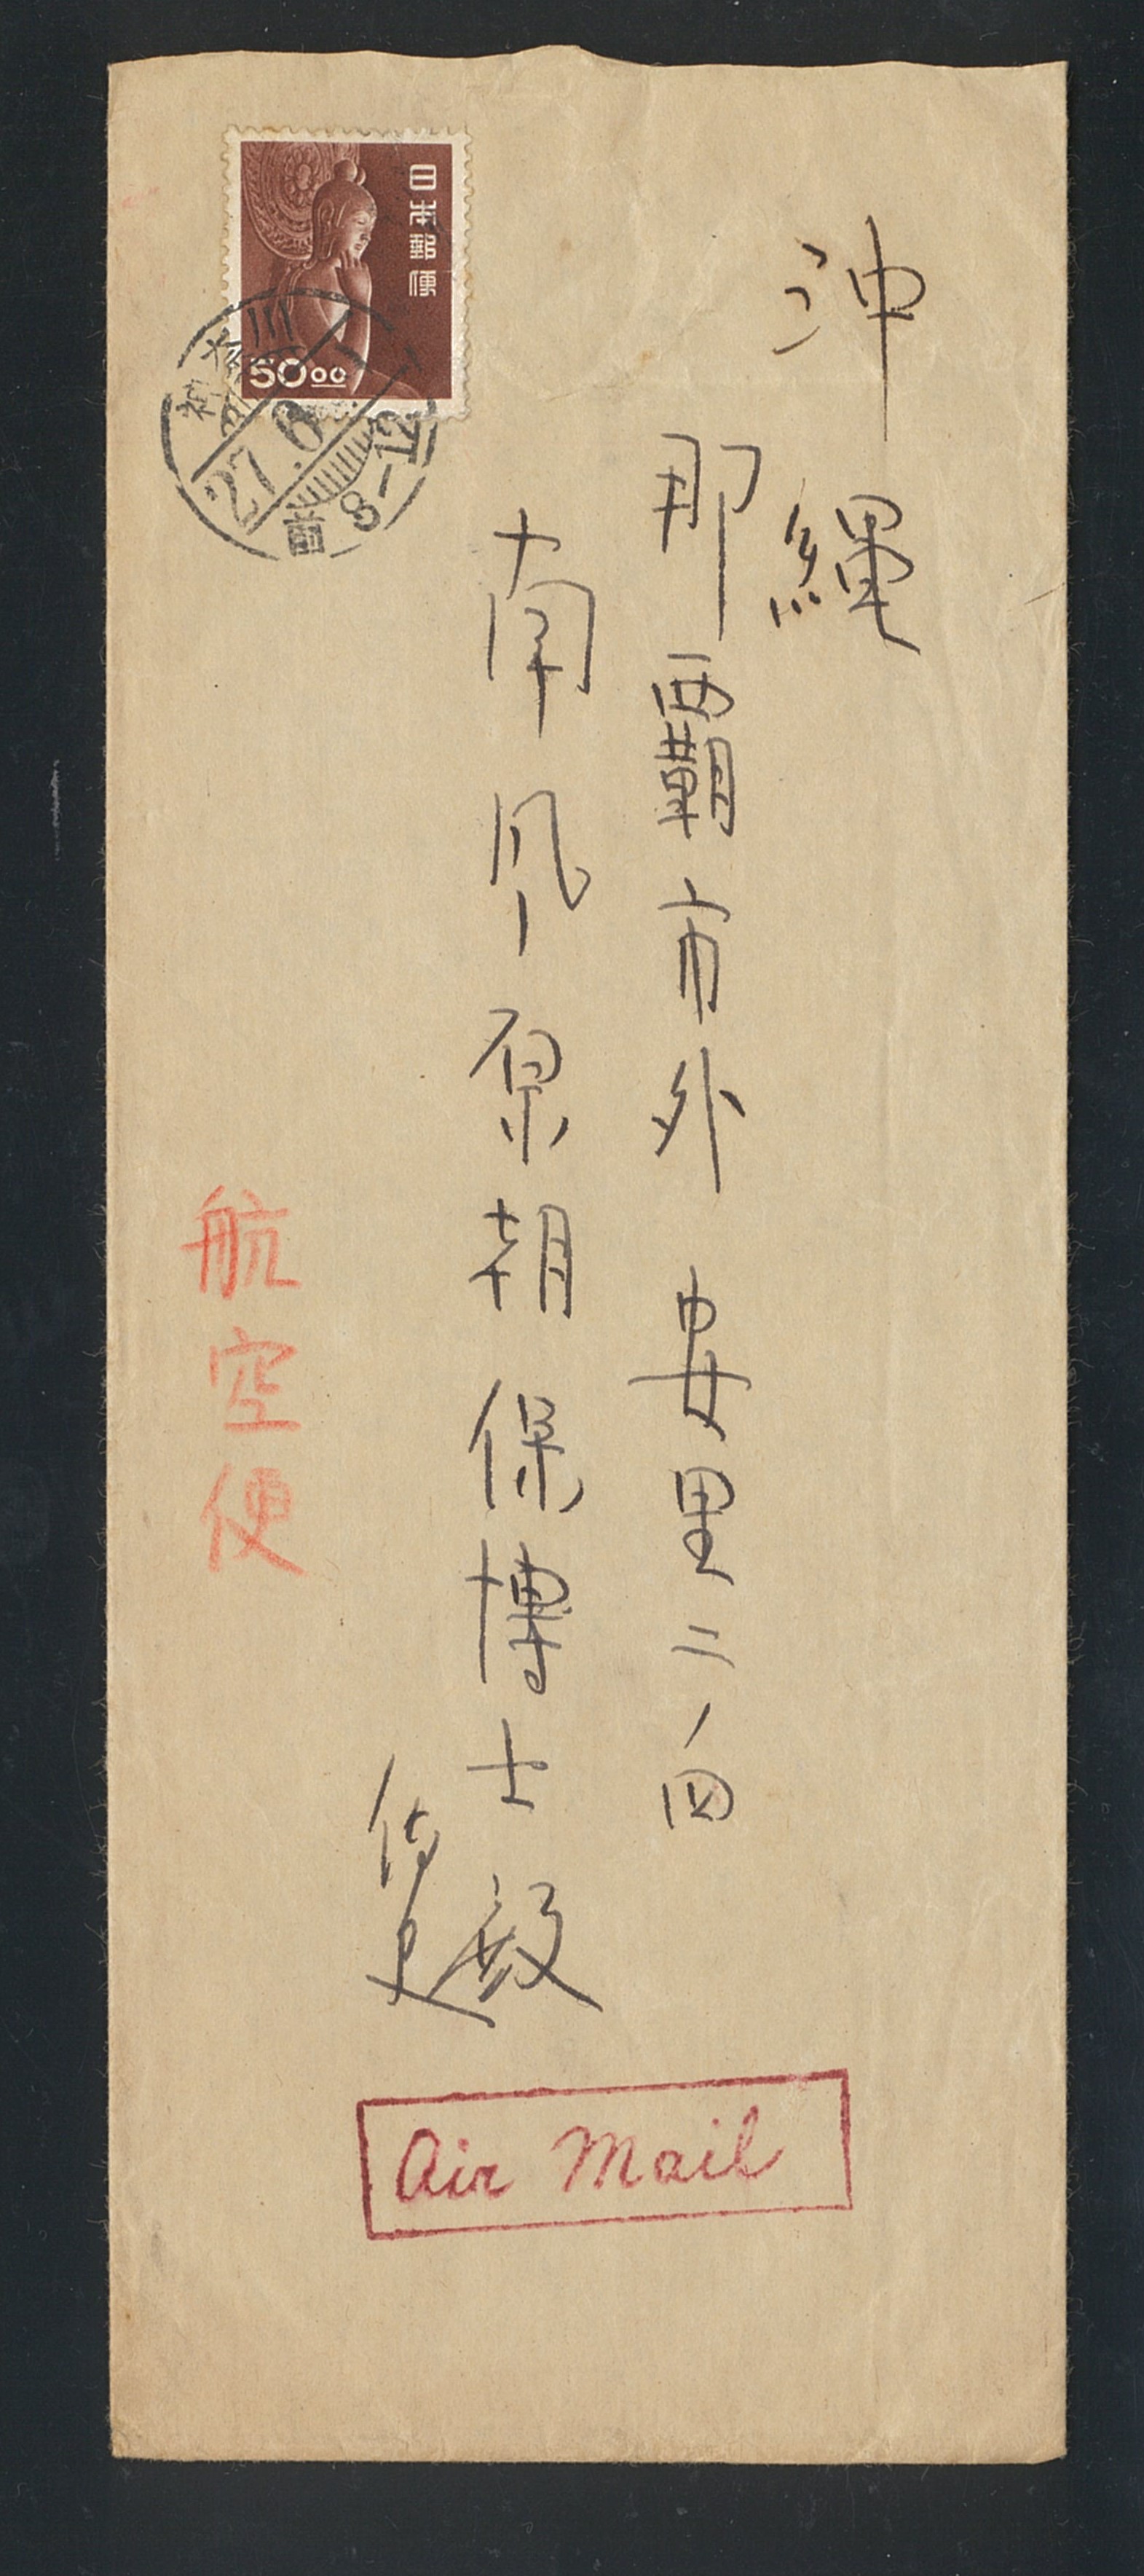 沖縄
那覇市外安里二ノ四
南風原朝保博士殿
侍史
航空便
Air Mail
日本郵便
5000
神奈川
27.6
前8-12